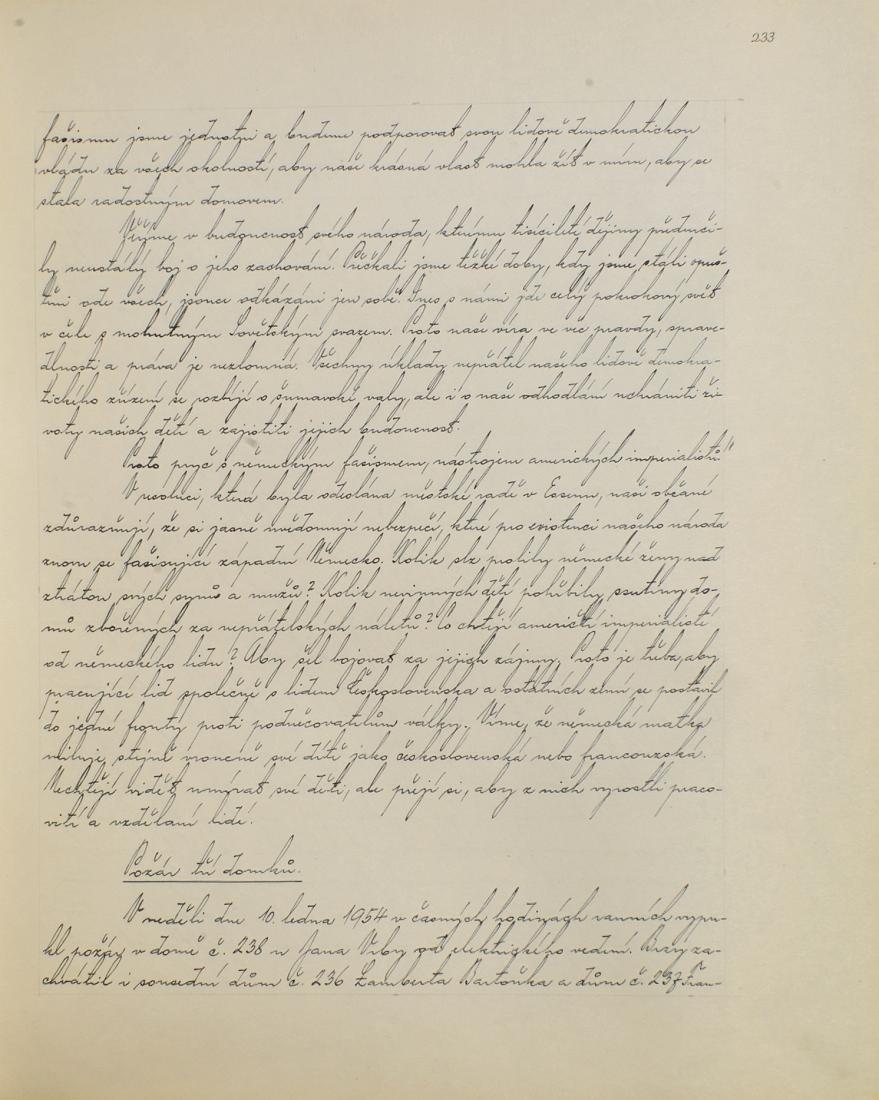 233
fašismu jsme jednotni a budeme podporovat svou lidově demokratickou
vládu za všech okolností, aby naše krásná vlast mohla žít v míru, aby se
stala radostným domovem.
Věříme v budoucnost svého národa, kterému tisícileté dějiny předurči-
ly neustálý boj o jeho zachování. Přečkali jsme těžké doby, kdy jsme stáli opuš-
těni ode všech, jsouce odkázáni jen sobě. Dnes s námi jde celý pokrokový svět
v čele s mohutným Sovětským svazem. Proto naše víra ve věc pravdy, sprave-
dlnosti a práva je nezlomná. Všechny úklady nepřátel našeho lidově demokra-
tického zřízení se rozbíjí o šumavské valy, ale i o naše odhodlání uchrániti ži-
voty našich dětí a zajistiti jejich budoucnost.
Proto pryč s německým fašismem, nástrojem amerických imperialistů!"
V resoluci, která byla odeslána městské radě v Essenu, naši občané
zdůrazňují, že si jasně uvědomují nebezpečí, které pro existenci našeho národa
znovu se fašisující západní Německo. Kolik slz prolily německé ženy nad
ztrátou svých synů a mužů? Kolik nevinných dětí pohřbily ssutiny do-
mů zbořených za nepřátelských náletů? Co chtějí američtí imperialisté
od německého lidu? Aby šel bojovat za jejich zájmy. Proto je třeba, aby
pracující lid společně s lidem Československa a ostatních zemí se postavil
do jedné fronty proti podněcovatelům války. Víme, že německá matka
miluje stejně vroucně své dítě jako československá nebo francouzská.
Nechtějí vidět umírat své děti, ale přejí si, aby z nich vyrostli praco-
vití a vzdělaní lidé.
Požár tří domků.
V neděli dne 10. ledna 1954 v časných hodinách ranních vypu-
kl požár v domě č. 238 u Jana Vrby od elektrického vedení. Brzy za-
chvátil i sousední dům č. 236 Lamberta Bartoňka a dům č. 237 Fran-